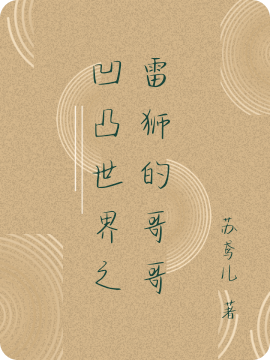 凹凸世界之
雷狮的哥哥
苏鸢儿 著